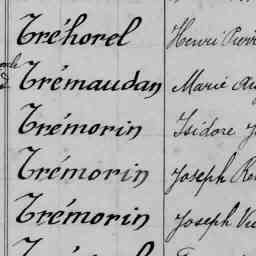 Tréhorel Henri
Trémaudan Marie
Trémorin Isidore
Trémorin Joseph
Trémorin Joseph